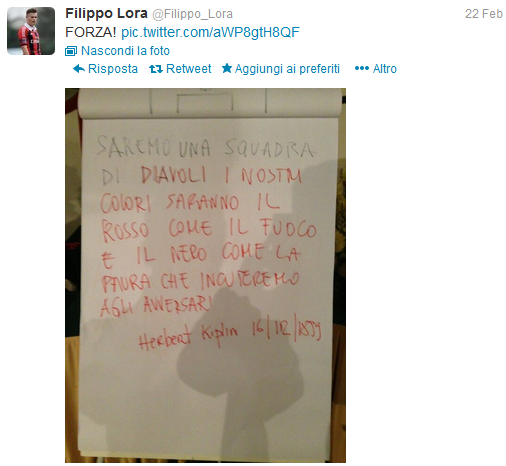 Filippo Lora @Filippo_Lora 22 Feb
FORZA! pic.twitter.com/aWP8gtH8QF
Nascondi la foto
Risposta Retweet Aggiungi ai preferiti Altro
SAREMO UNA SQUADRA
DI DIAVOLI I NOSTRI
COLORI SARANNO IL
ROSSO COME IL FUOCO
E IL NERO COME LA
PAURA CHE INCUTEREMO
AGLI AVVERSARI
Herbert Kiplin 16/12/1899